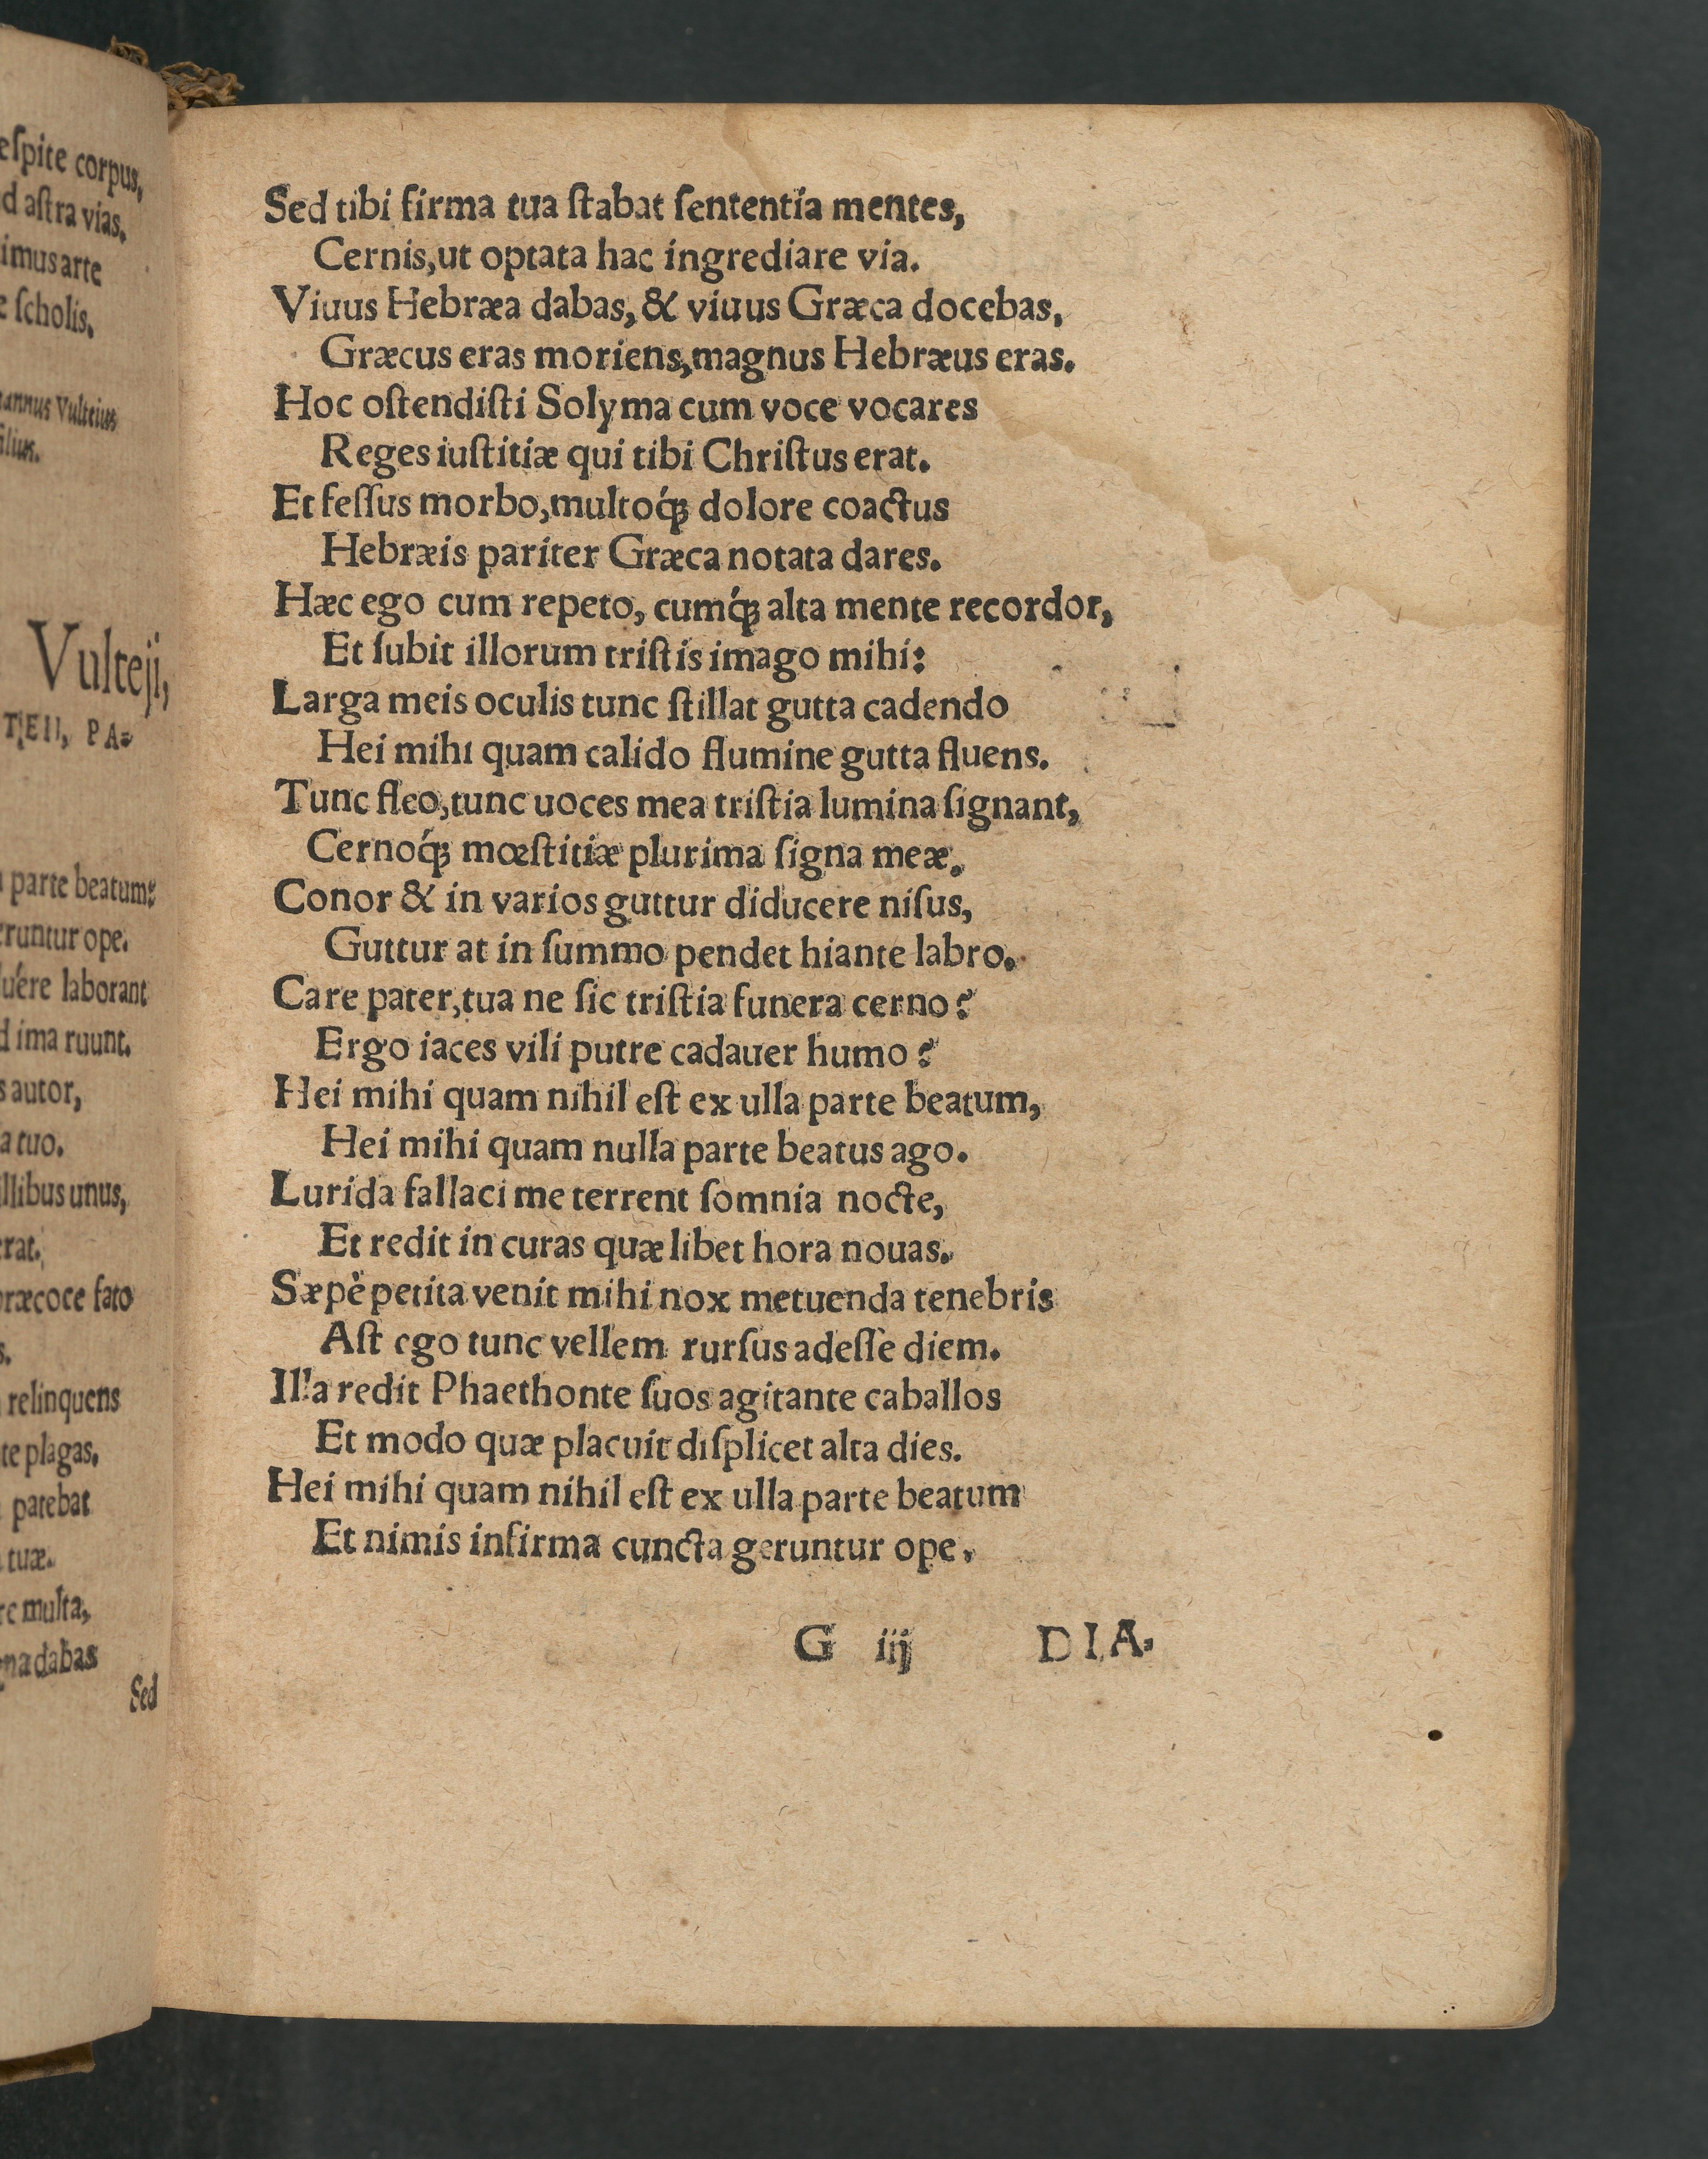 eſpite corpus,
d aſtra vias.
imus arte
ſcholis.
annus Vulteius
ilius.
Vulteji,
TEII, PA-
parte beatum:
eruntur ope.
uére laborant
d ima ruunt.
s autor,
a tuo.
illibus unus,
erat.
præcoce fato
s.
relinquens
te plagas.
patebat
tuæ.
re multa,
gna dabas
Sed
Sed tibi firma tua ſtabat ſententia mentes,
Cernis, ut optata hac ingrediare via.
Viuus Hebræa dabas, & viuus Græca docebas,
Græcus eras moriens, magnus Hebræus eras.
Hoc oſtendiſti Solyma cum voce vocares
Reges iuſtitiæ qui tibi Chriſtus erat.
Et feſſus morbo, multoq́; dolore coactus
Hebræis pariter Græca notata dares.
Hæc ego cum repeto, cumq́; alta mente recordor,
Et ſubit illorum triſtis imago mihi:
Larga meis oculis tunc ſtillat gutta cadendo
Hei mihi quam calido flumine gutta fluens.
Tunc fleo, tunc uoces mea triſtia lumina ſignant,
Cernoq́; mœſtitiæ plurima ſigna meæ.
Conor & in varios guttur diducere niſus,
Guttur at in ſummo pendet hiante labro.
Care pater, tua ne ſic triſtia funera cerno?
Ergo iaces vili putre cadauer humo?
Hei mihi quam nihil eſt ex ulla parte beatum,
Hei mihi quam nulla parte beatus ago.
Lurida fallaci me terrent ſomnia nocte,
Et redit in curas quælibet hora nouas.
Sæpè petita venit mihi nox metuenda tenebris
Aſt ego tunc vellem rurſus adeſſe diem.
Illa redit Phaethonte ſuos agitante caballos
Et modo quæ placuit diſplicet alta dies.
Hei mihi quam nihil eſt ex ulla parte beatum
Et nimis infirma cuncta geruntur ope.
G iij DIA.